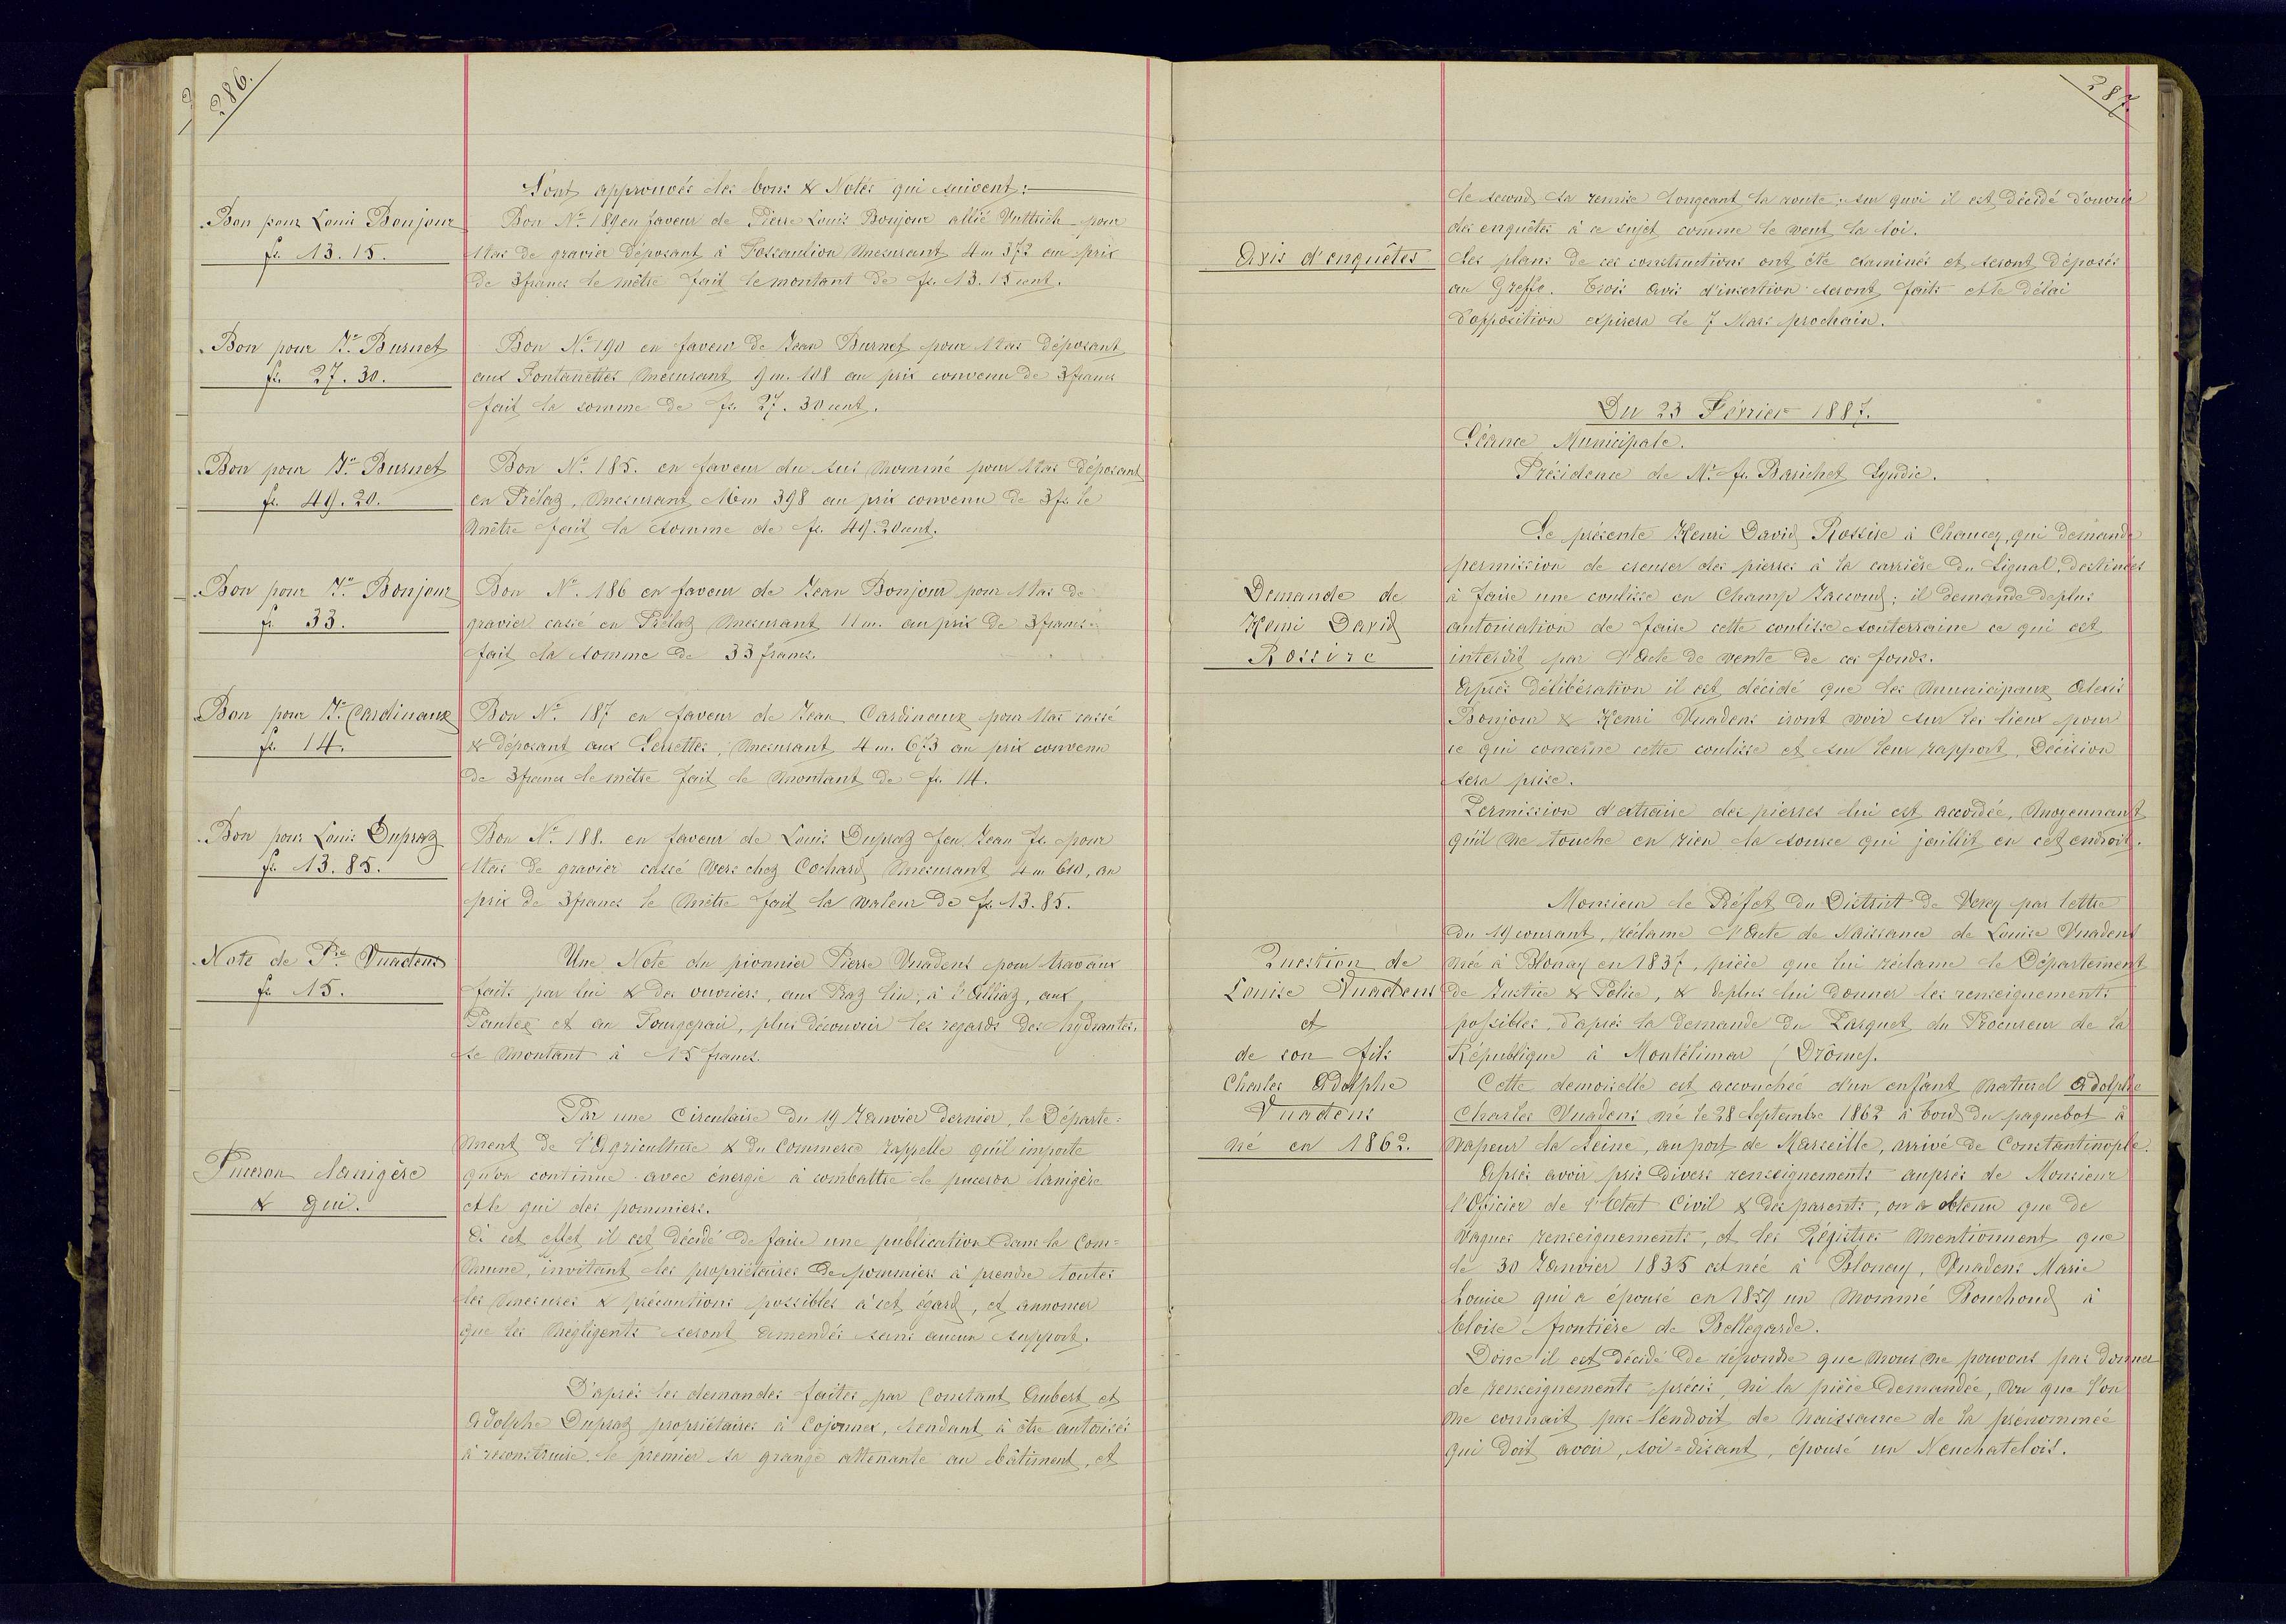 286.
Sont approuvés les bons & Notes qui suivent:
Bon pour Louis Bonjour
fr. 13.15.
Bon No 189 en faveur de Pierre Louis Bonjour allié Wuttrich pour
1 tas de gravier déposant à Fossaulion mesurant 4m 372 au prix
de 3 francs le mètre fait le montant de fr. 13.15 cent.
Bon pour Jn Burnet
fr. 27.30.
Bon No 190 en faveur de Jean Burnet pour 1 tas déposant
aux Fontanettes mesurant 9m. 108 au prix convenu de 3 francs
fait la somme de fr. 27.30 cent.
Bon pour Jn Burnet
fr. 49.20.
Bon No 185. en faveur du sus nommé pour 1 tas déposant
en Prélaz, mesurant 16m 398 au prix convenu de 3 fr. le
mètre fait la somme de fr. 49.20 cent.
Bon pour Jn Bonjour
fr. 33.
Bon No 186 en faveur de Jean Bonjour pour 1 tas de
gravier cassé en Prélaz mesurant 11m. au prix de 3 francs
fait la somme de 33 francs.
Bon pour Jn Cardinaux
fr. 14.
Bon No 187 en faveur de Jean Cardinaux pour 1 tas cassé
& déposant aux Serrettes, mesurant 4m. 673 au prix convenu
de 3 francs le mètre fait le montant de fr. 14.
Bon pour Louis Dupraz
fr. 13.85.
Bon No 188. en faveur de Louis Dupraz feu Jean fs. pour
1 tas de gravier cassé vers chez Cochard mesurant 4m 610, au
prix de 3 francs le mètre fait la valeur de fr. 13.85.
Note de Pre Vuadens
fr. 15.
Une Note du pionnier Pierre Vuadens pour travaux
faits par lui & des ouvriers, aux Praz lin, à l'Alliaz, aux
et au plus découvrir les regards des hydrantes.
se montant à 15 francs.
Puceron lanigère
& gui.
Par une Circulaire du 19 Janvier dernier, le Départe:
ment de l'Agriculture & du Commerce rappelle qu'il importe
qu'on continue avec énergie à combattre le puceron lanigère
et le gui des pommiers.
à cet effet il est décidé de faire une publication dans la Com=
mune, invitant les propriétaires de pommiers à prendre toutes
les mesures & précautions possibles à cet égard, et annoncer
que les négligents seront amendés sans aucun support.
D'après les demandes faites par Constant Aubert et
Adolphe Dupraz propriétaires à Cojonnex, tendant à être autorisés
à reconstruire le premier sa grange attenante au bâtiment, et
287.
le second sa remise longeant la route; sur quoi il est décidé d'ouvrir
des enquêtes à ce sujet comme le veut la loi.
Avis d'enquêtes
Les plans de ces constructions ont été examinés et seront déposés
au Greffe. Trois avis d'insertion seront faits et le délai
d'opposition expirera le 7 Mars prochain.
Du 23 Février 1887.
Séance Municipale.
Présidence de Mr fs. Barichet Syndic.
Demande de
Henri David
Rossire
Se présente Henri David Rossire à Chaucey, qui demande
permission de creuser des pierres à la carrière du Signal, destinées
à faire une coulisse en Champ Jaccoud; il demande deplus
autorisation de faire cette coulisse souterraine ce qui est
interdit par l'Acte de vente de ces fonds.
Après délibération il est décidé que les municipaux Alexis
Bonjour & Henri Vuadens iront voir sur les lieux pour
ce qui concerne cette coulisse et sur leur rapport, Décision
sera prise.
Permission d'extraire des pierres lui est accordée, moyennant
qu'il ne touche en rien la source qui jaillit en cet endroit.
Question de
Louise Vuadens
et
de son fils
Charles Adolphe
Vuadens
né en 1862.
Monsieur le Préfet du District de Vevey par lettre
du 19 courant, réclame l'Acte de Naissance de Louise Vuadens
née à Blonay en 1837, pièce que lui réclame le Département
de Justice & Police, & deplus lui donner les renseignements
possibles, d'après la demande du Parquet du Procureur de la
République à Montélimar (Drôme).
Cette demoiselle est accouchée d'un enfant naturel Adolphe
Charles Vuadens né le 28 Septembre 1862 à bord du paquebot à
vapeur la Seine, au port de Marseille, arrivé de Constantinople.
Après avoir pris divers renseignements auprès de Monsieur
l'Officier de l'Etat Civil & des parents, on a obtenu que de
vagues renseignements, et les Régistres mentionnent que
le 30 Janvier 1835 est née à Blonay, Vuadens Marie
Louise qui a épousé en 1859 un nommé Bouchoud à
Eloise frontière de Bellegarde.
Donc il est décidé de répondre que nous ne pouvons pas donner
de renseignements précis, ni la pièce demandée, vu que l'on
ne connait pas l'endroit de naissance de la prénommée
qui doit avoir, soi=disant, épousé un Neuchatelois.